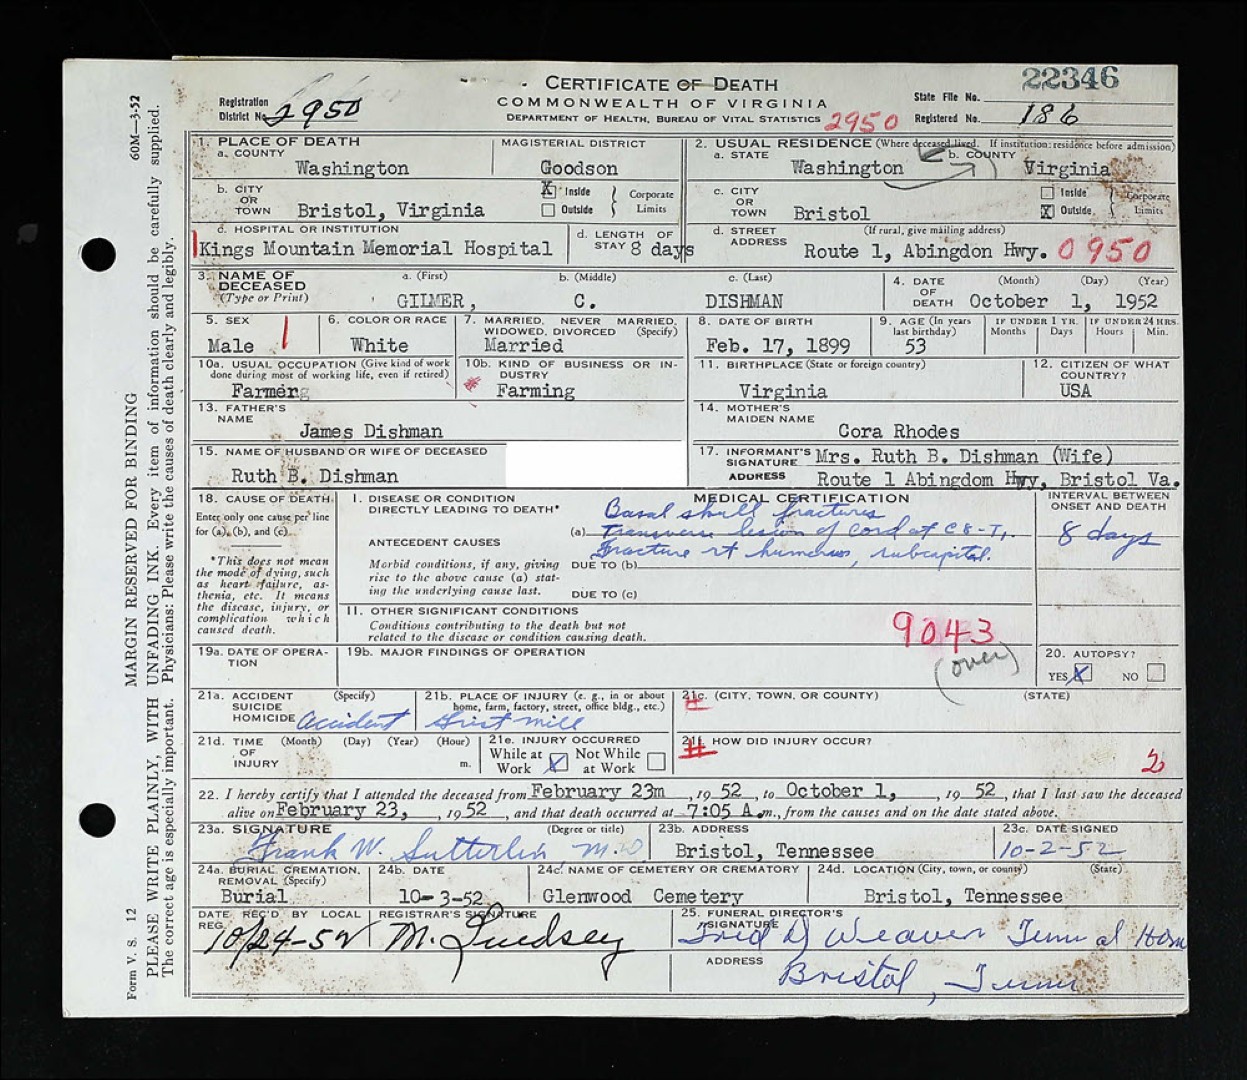 CERTIFICATE OF DEATH
COMMONWEALTH OF VIRGINIA
DEPARTMENT OF HEALTH, BUREAU OF VITAL STATISTICS 2950
Registration District No. 2950
22346
State File No.
Registered No. 186
60M—3-52
MARGIN RESERVED FOR BINDING
PLEASE WRITE PLAINLY, WITH UNFADING INK. Every item of information should be carefully supplied.
The correct age is especially important. Physicians: Please write the causes of death clearly and legibly.
Form V. S. 12
1. PLACE OF DEATH
a. COUNTY Washington
MAGISTERIAL DISTRICT Goodson
2. USUAL RESIDENCE (Where deceased lived. If institution: residence before admission)
a. STATE Washington
b. COUNTY Virginia
b. CITY OR TOWN Bristol, Virginia
X Inside
Outside
Corporate Limits
c. CITY OR TOWN Bristol
Inside
X Outside
Corporate Limits
d. HOSPITAL OR INSTITUTION
Kings Mountain Memorial Hospital
d. LENGTH OF STAY 8 days
d. STREET ADDRESS (If rural, give mailing address)
Route 1, Abingdon Hwy. 0950
3. NAME OF DECEASED (Type or Print)
a. (First) GILMER,
b. (Middle) C.
c. (Last) DISHMAN
4. DATE OF DEATH (Month) (Day) (Year)
October 1, 1952
5. SEX Male
6. COLOR OR RACE White
7. MARRIED, NEVER MARRIED, WIDOWED, DIVORCED (Specify) Married
8. DATE OF BIRTH Feb. 17, 1899
9. AGE (In years last birthday) 53
IF UNDER 1 YR. Months Days
IF UNDER 24 HRS. Hours Min.
10a. USUAL OCCUPATION (Give kind of work done during most of working life, even if retired) Farmer
10b. KIND OF BUSINESS OR INDUSTRY Farming
11. BIRTHPLACE (State or foreign country) Virginia
12. CITIZEN OF WHAT COUNTRY? USA
13. FATHER'S NAME James Dishman
14. MOTHER'S MAIDEN NAME Cora Rhodes
15. NAME OF HUSBAND OR WIFE OF DECEASED
Ruth B. Dishman
17. INFORMANT'S SIGNATURE Mrs. Ruth B. Dishman (Wife)
ADDRESS Route 1 Abingdom Hwy, Bristol Va.
18. CAUSE OF DEATH
Enter only one cause per line for (a), (b), and (c)
*This does not mean the mode of dying, such as heart failure, asthenia, etc. It means the disease, injury, or complication which caused death.
MEDICAL CERTIFICATION
INTERVAL BETWEEN ONSET AND DEATH
I. DISEASE OR CONDITION DIRECTLY LEADING TO DEATH*
Basal skull fractures
(a) Transverse lesion of cord at C8-T1.
8 days
ANTECEDENT CAUSES
Fracture rt humerus, subcapital.
Morbid conditions, if any, giving rise to the above cause (a) stating the underlying cause last.
DUE TO (b)
DUE TO (c)
II. OTHER SIGNIFICANT CONDITIONS
Conditions contributing to the death but not related to the disease or condition causing death.
9043
(over)
19a. DATE OF OPERATION
19b. MAJOR FINDINGS OF OPERATION
20. AUTOPSY?
YES X NO
21a. ACCIDENT SUICIDE HOMICIDE (Specify) Accident
21b. PLACE OF INJURY (e. g., in or about home, farm, factory, street, office bldg., etc.) Grist mill
21c. (CITY, TOWN, OR COUNTY) (STATE)
21d. TIME OF INJURY (Month) (Day) (Year) (Hour) m.
21e. INJURY OCCURRED
While at Work X Not While at Work
21f. HOW DID INJURY OCCUR?
2
22. I hereby certify that I attended the deceased from February 23m, 19 52, to October 1, 19 52, that I last saw the deceased
alive on February 23, 19 52, and that death occurred at 7:05 A m., from the causes and on the date stated above.
23a. SIGNATURE (Degree or title)
Frank W. Sutterlin, M.D.
23b. ADDRESS Bristol, Tennessee
23c. DATE SIGNED 10-2-52
24a. BURIAL, CREMATION, REMOVAL (Specify) Burial
24b. DATE 10-3-52
24c. NAME OF CEMETERY OR CREMATORY Glenwood Cemetery
24d. LOCATION (City, town, or county) (State) Bristol, Tennessee
DATE REC'D BY LOCAL REG. 10/24-52
REGISTRAR'S SIGNATURE M. Lindsey
25. FUNERAL DIRECTOR'S SIGNATURE Fred D Weaver Funeral Hom
ADDRESS Bristol, Tenn